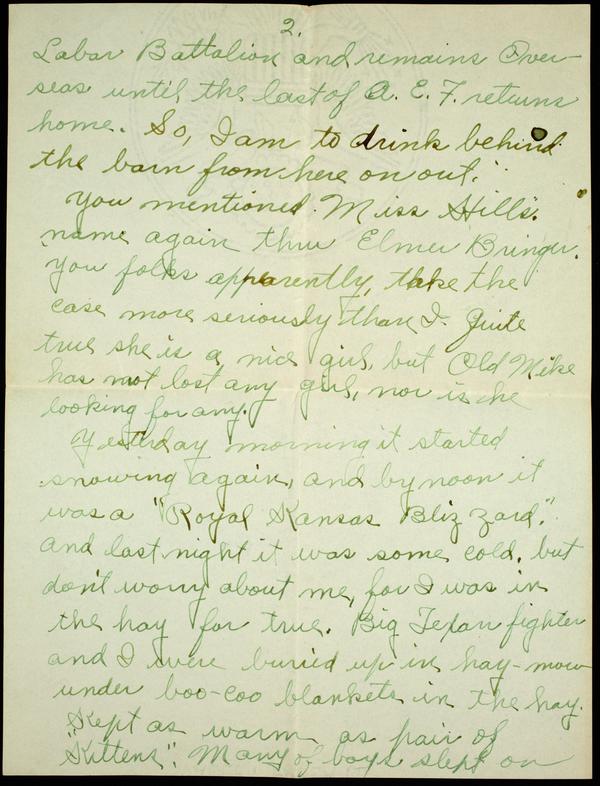 2.
Labor Battalion and remains Over-
seas until the last of A. E. F. returns
home. So, I am to drink behind
the barn from here on out."
You mentioned Miss Hill's
name again thru Elmer Bringer.
You folks apparently, take the
case more seriously than I. Quite
true she is a nice girl, but Old Mike
has not lost any girl, nor is he
looking for any.
Yesterday morning it started
snowing again, and by noon it
was a "Royal Kansas Blizzard".
And last night it was some cold, but
don't worry about me, for I was in
the hay for true. Big Texan fighter
and I were buried up in hay-mow
under boo-coo blankets in the hay.
Kept as warm as pair of
"Kittens". Many of boys slept on